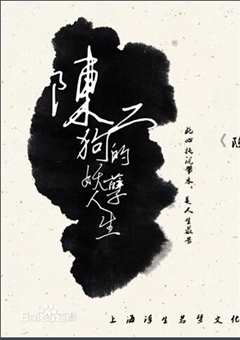 陳二狗
的妖孽
人生
此心托说幣來，是人生最苦
《陈
上海浮生若梦文化
Bai百科